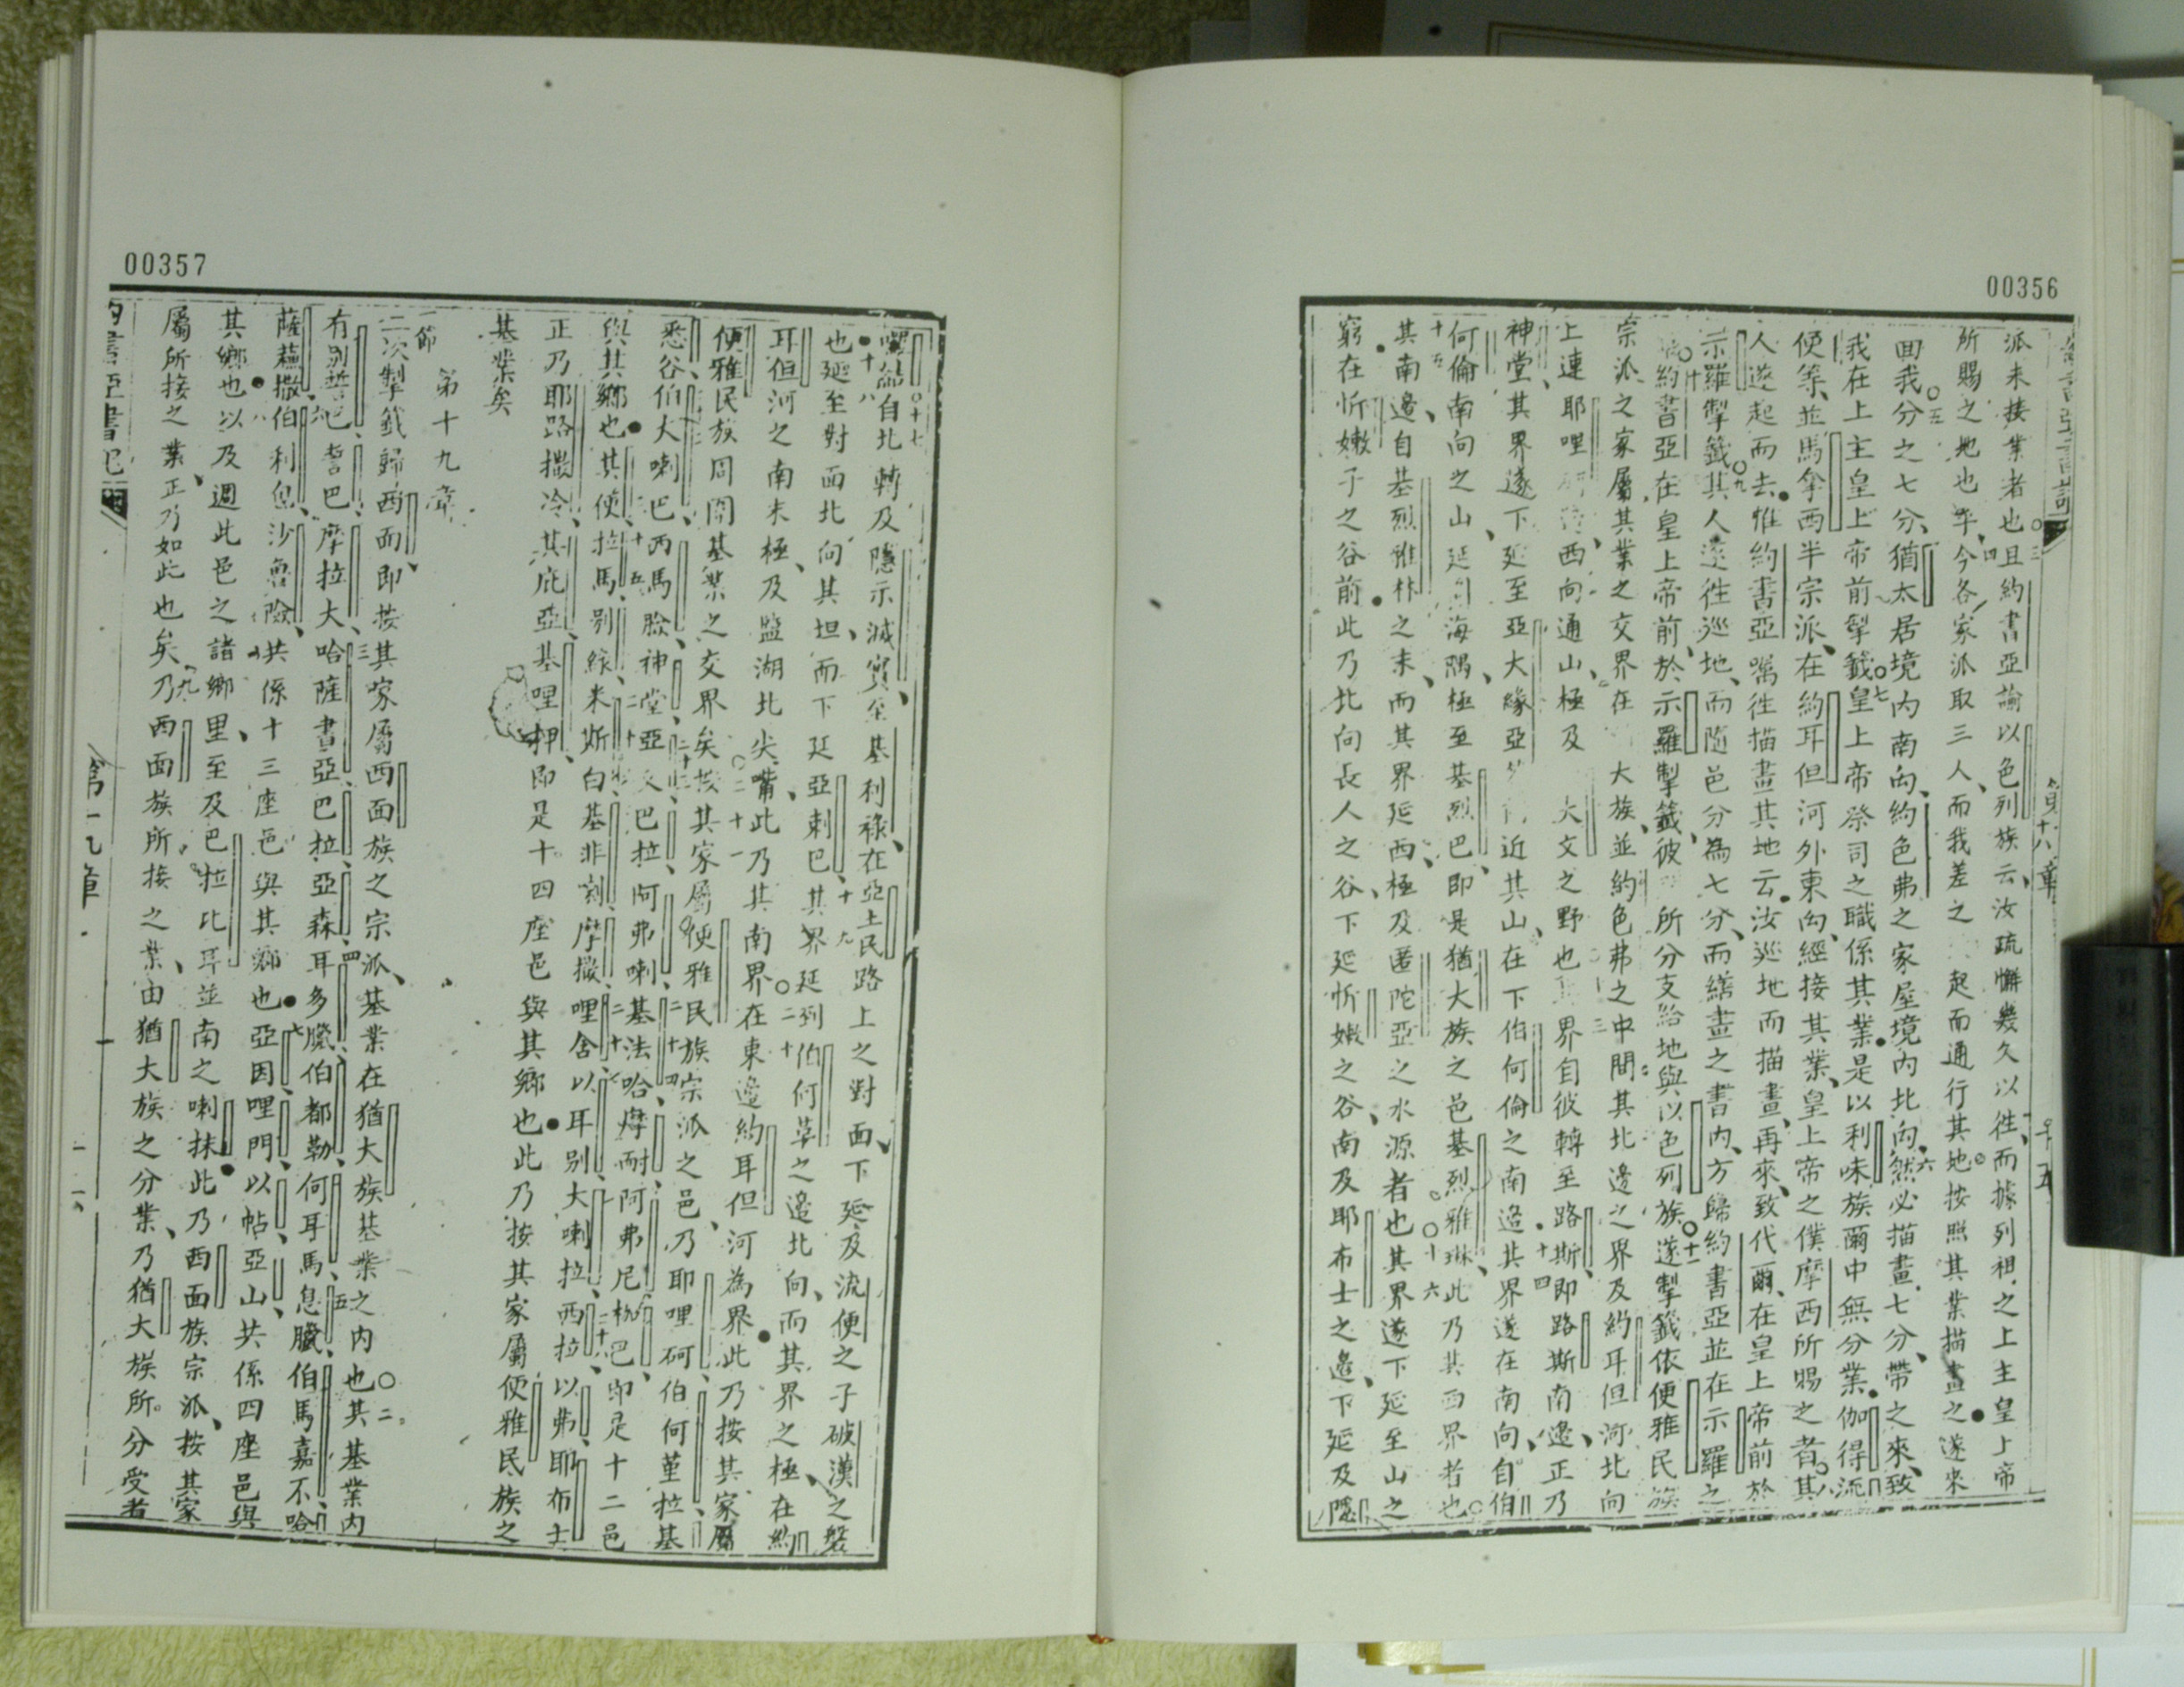 00356
第十八章
派未接業者也○三且約書亞諭以色列族云、汝疏懈幾久以徃、而據列祖之上主皇上帝
所賜之地也、四今各家派取三人、而我差之起而通行其地按照其業描畫之●遂來
回我○五分之七分、猶太居境內南向、約色弗之家屋境內北向、六然必描畫七分、帶之來、致
我在上主皇上帝前掣籤○七皇上帝祭司之職係其業●是以利味族爾中無分業●伽得流
便等、並馬拿西半宗派、在約耳但河外東向、經接其業、皇上帝之僕摩西所賜之者○八其
人遂起而去●惟約書亞囑徃描畫其地云●汝巡地而描畫、再來、致代爾、在皇上帝前於
示羅掣籤○九其人遂徃巡地、而隨邑分為七分、而繕畫之書內、方歸約書亞並在示羅之
○十約書亞在皇上帝前、於示羅掣籤、彼所分支給地與以色列族○十一遂掣籤依便雅民族
宗派之家屬、其業之交界在大族、並約色弗之中間其北邊之界及約耳但河北向
上連耶哩西向通山、極及大文之野也界自彼轉至路斯、即路斯南邊、正乃
神堂、其界遂下延至亞大緣亞近其山、在下伯何倫之南邊●十四其界遂在南向、自伯
何倫南向之山、延海隅、極至基烈巴、即是猶大族之邑基烈雅琳、此乃其西界者也○
十五其南邊、自基烈雅林之末、而其界延西、極及匿陀亞之水源者也○十六其界遂下延至山之
窮●在忻嫩子之谷前●此乃北向長人之谷、下延忻嫩之谷、南及耶布士之邊、下延及隱
00357
哩結○十七自北轉及隱示滅實、至基利祿、在亞土民路上之對面、下延及流便之子破漢之磐
●十八也延至對面北向其坦、而下延亞剌巴、十九其界延到伯何革之邊北向、而其界之極、在約
耳但河之南末極、及鹽湖北尖嘴、此乃其南界○二十在東邊約耳但河為界●此乃按其家屬
便雅民族周圍基業之交界矣○二十一按其家屬便雅民族宗派之邑、乃耶哩砢伯何堇拉基
悉谷、伯大喇巴、西馬臉、神堂、亞文、巴拉、阿弗喇、二十四基法哈摩耐、阿弗尼、枇巴、即是十二邑
與其鄉也●其便、拉馬、別綠、米斯白、基非剌、摩撒、哩舍、以耳別、大喇拉、西拉、以弗、耶布士
正乃耶路撒冷、其庇亞、基哩押、即是十四座邑與其鄉也●此乃按其家屬便雅民族之
基業矣
第十九章
一節二次掣籤歸西面、即按其家屬西面族之宗派、基業在猶大族基業之內也○二其基業內
有別誓巴、誓巴、摩拉大、三哈薩書亞、巴拉、亞森、四耳多臘、伯都勒、何耳馬、五息臘、伯馬嘉不、哈
薩蘇撒、六伯利皀、沙魯險、共係十三座邑與其鄉也●七亞因、哩門、以帖、亞山、共係四座邑與
其鄉也●八以及週此邑之諸鄉里、至及巴拉比耳並南之喇抹●此乃西面族宗派、按其家
屬所接之業、正乃如此也矣、九乃西面族所接之業、由猶大族之分業、乃猶大族所分受者